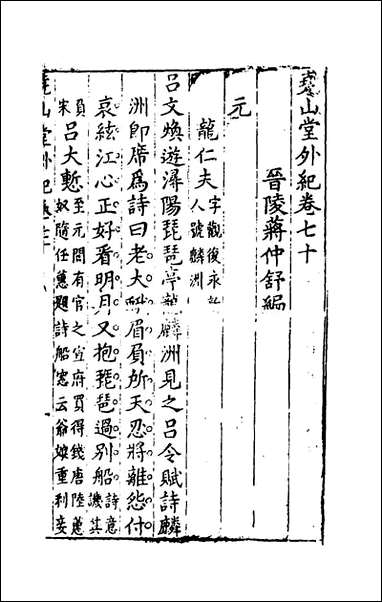 堯山堂外紀卷七十
晉陵蔣仲舒編
元
龍仁夫 字觀復永新人號麟洲
呂文煥遊潯陽琵琶亭龍麟洲見之呂令賦詩麟
洲即席為詩曰老大蛾眉負所天忍將離怨付
哀絃江心正好看明月又抱琵琶過別船 詩意譏其
負宋 呂大慙 至元間有官之宣府買得錢唐陸蕙奴隨任蕙題詩船窓云爺娘重利妾